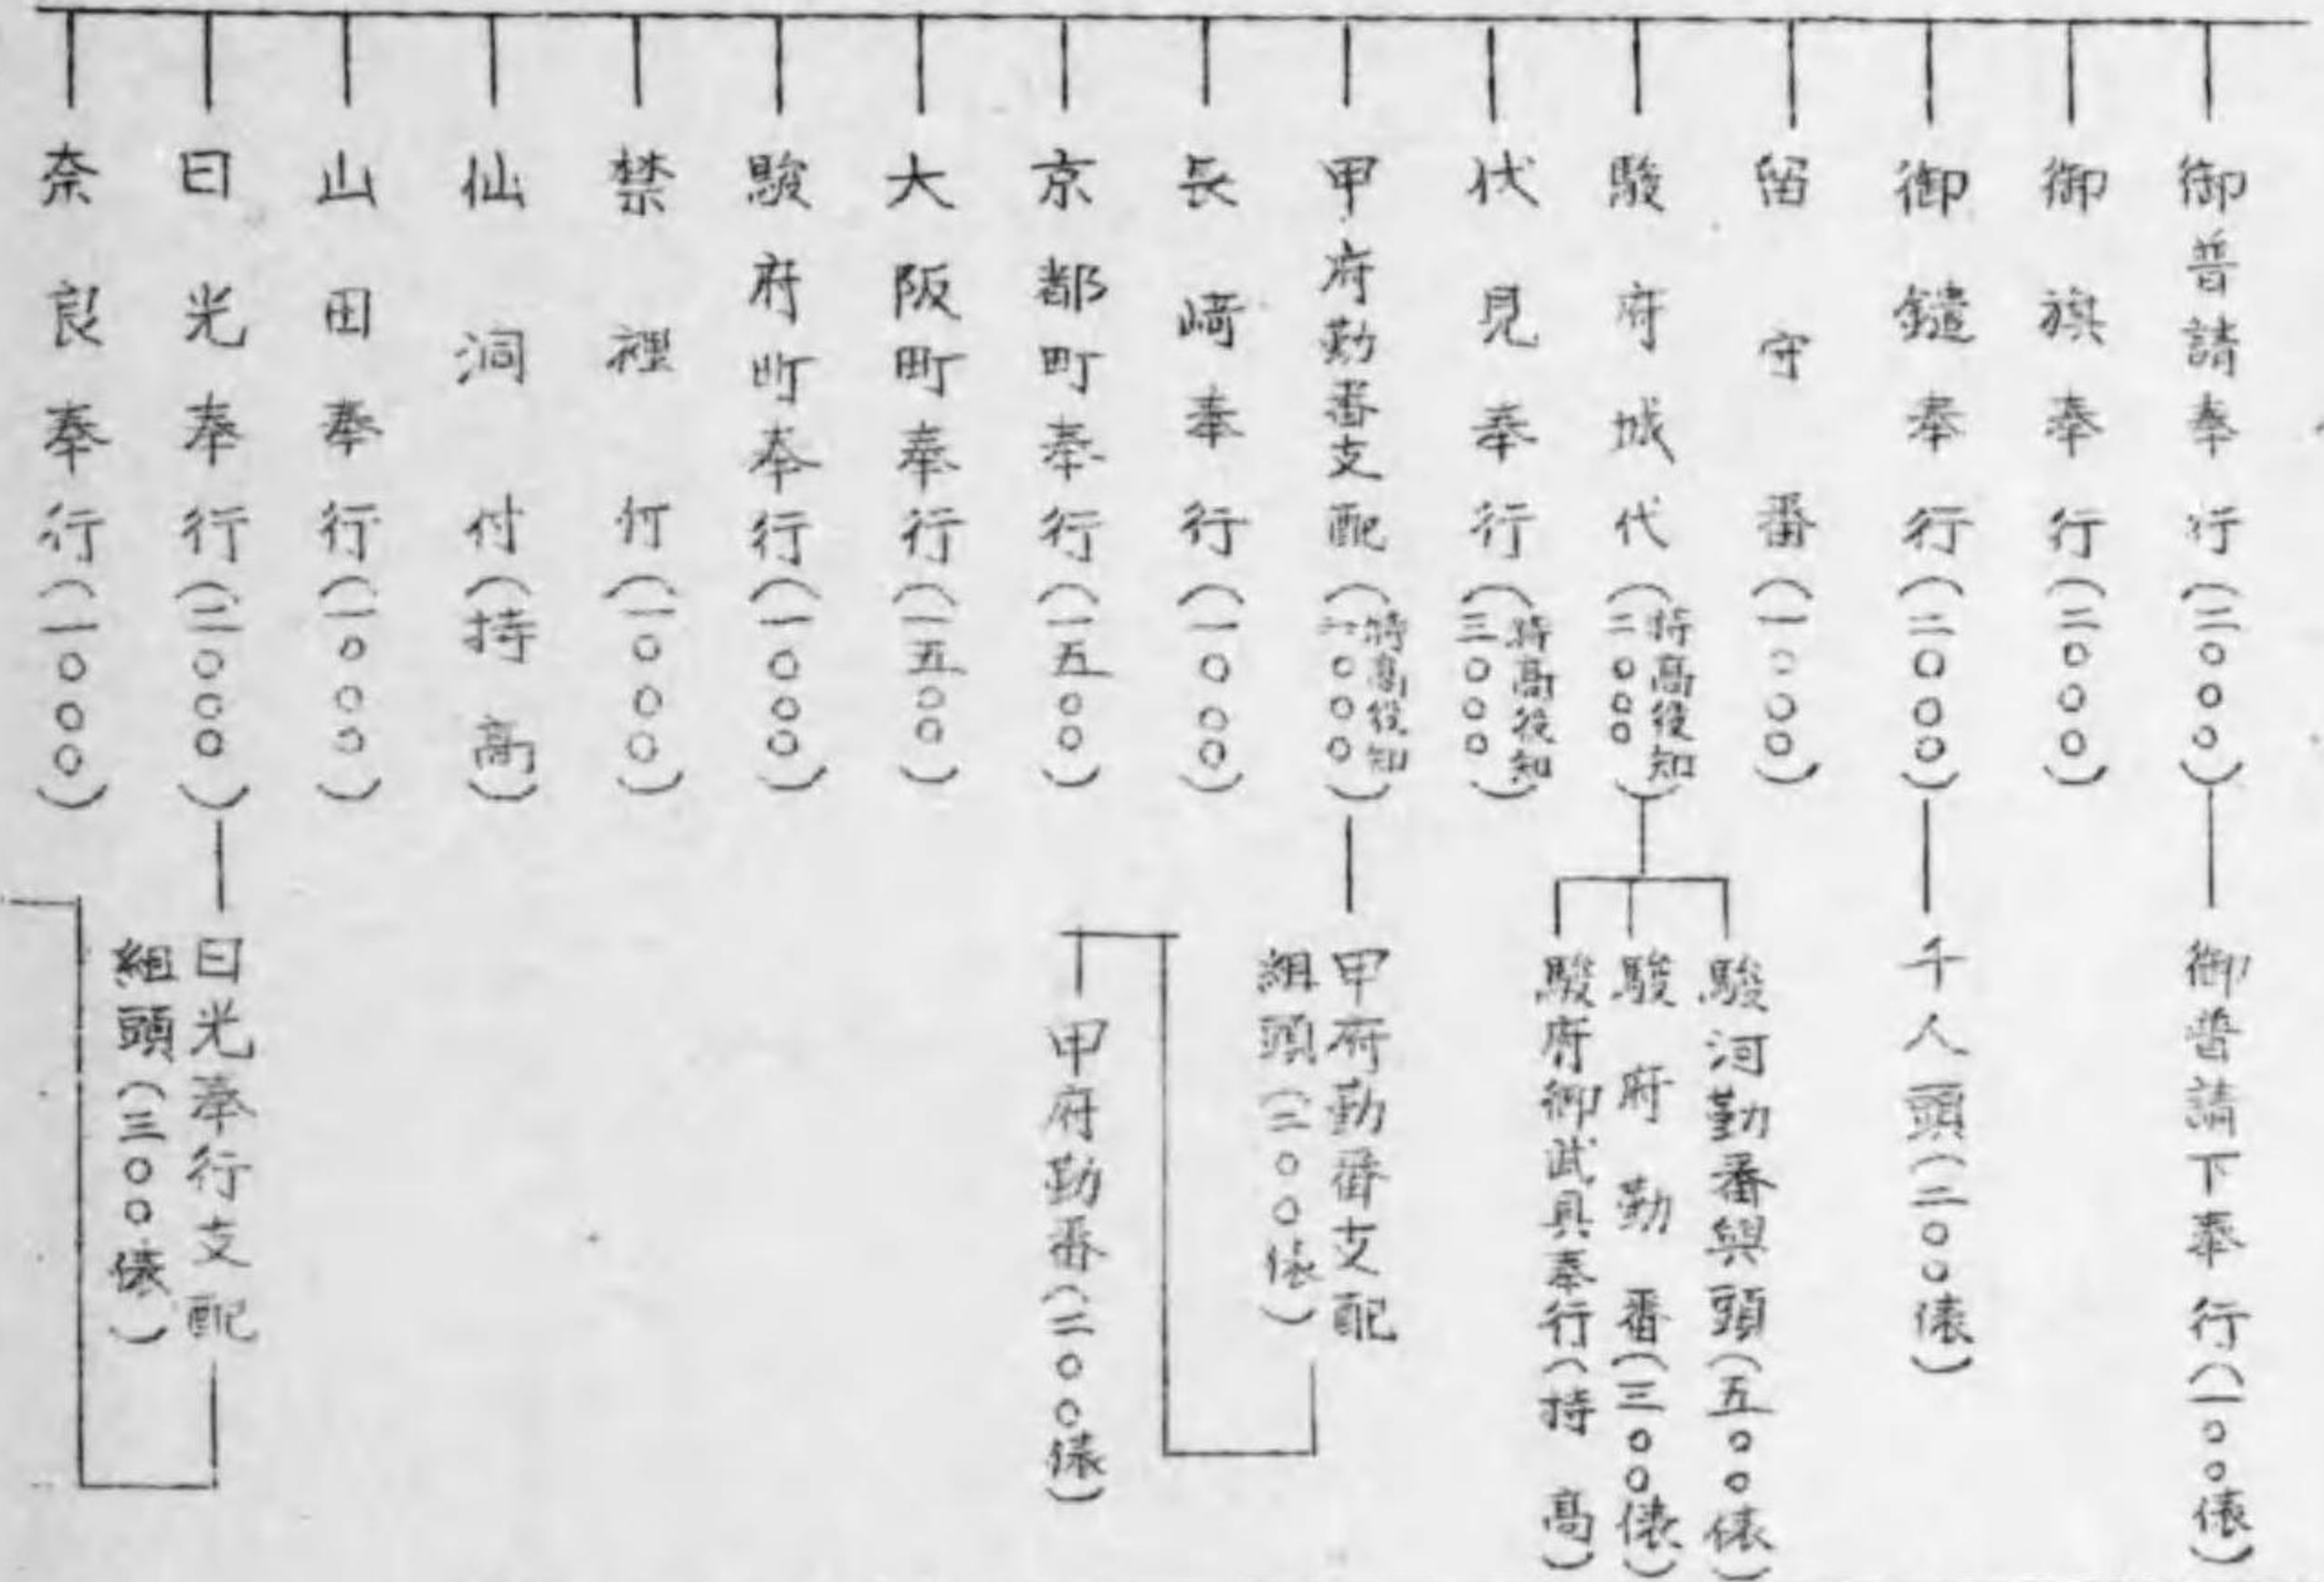 御普請奉行(二〇〇〇)
御普請下奉行(一〇〇俵)
御旗奉行(二〇〇〇)
御鑓奉行(二〇〇〇)
千人頭(二〇〇俵)
留守番(一〇〇〇)
駿府城代(持高役知二〇〇〇)
駿河勤番與頭(五〇〇俵)
駿府勤番(三〇〇俵)
駿府御武具奉行(持高)
伏見奉行(持高役知三〇〇〇)
甲府勤番支配(持高役知一〇〇〇)
甲府勤番支配
組頭(三〇〇俵)
甲府勤番(二〇〇俵)
長崎奉行(一〇〇〇)
京都町奉行(一五〇〇)
大阪町奉行(一五〇〇)
駿府町奉行(一〇〇〇)
禁裡付(一〇〇〇)
仙洞付(持高)
山田奉行(一〇〇〇)
日光奉行(二〇〇〇)
日光奉行支配
組頭(三〇〇俵)
奈良奉行(一〇〇〇)